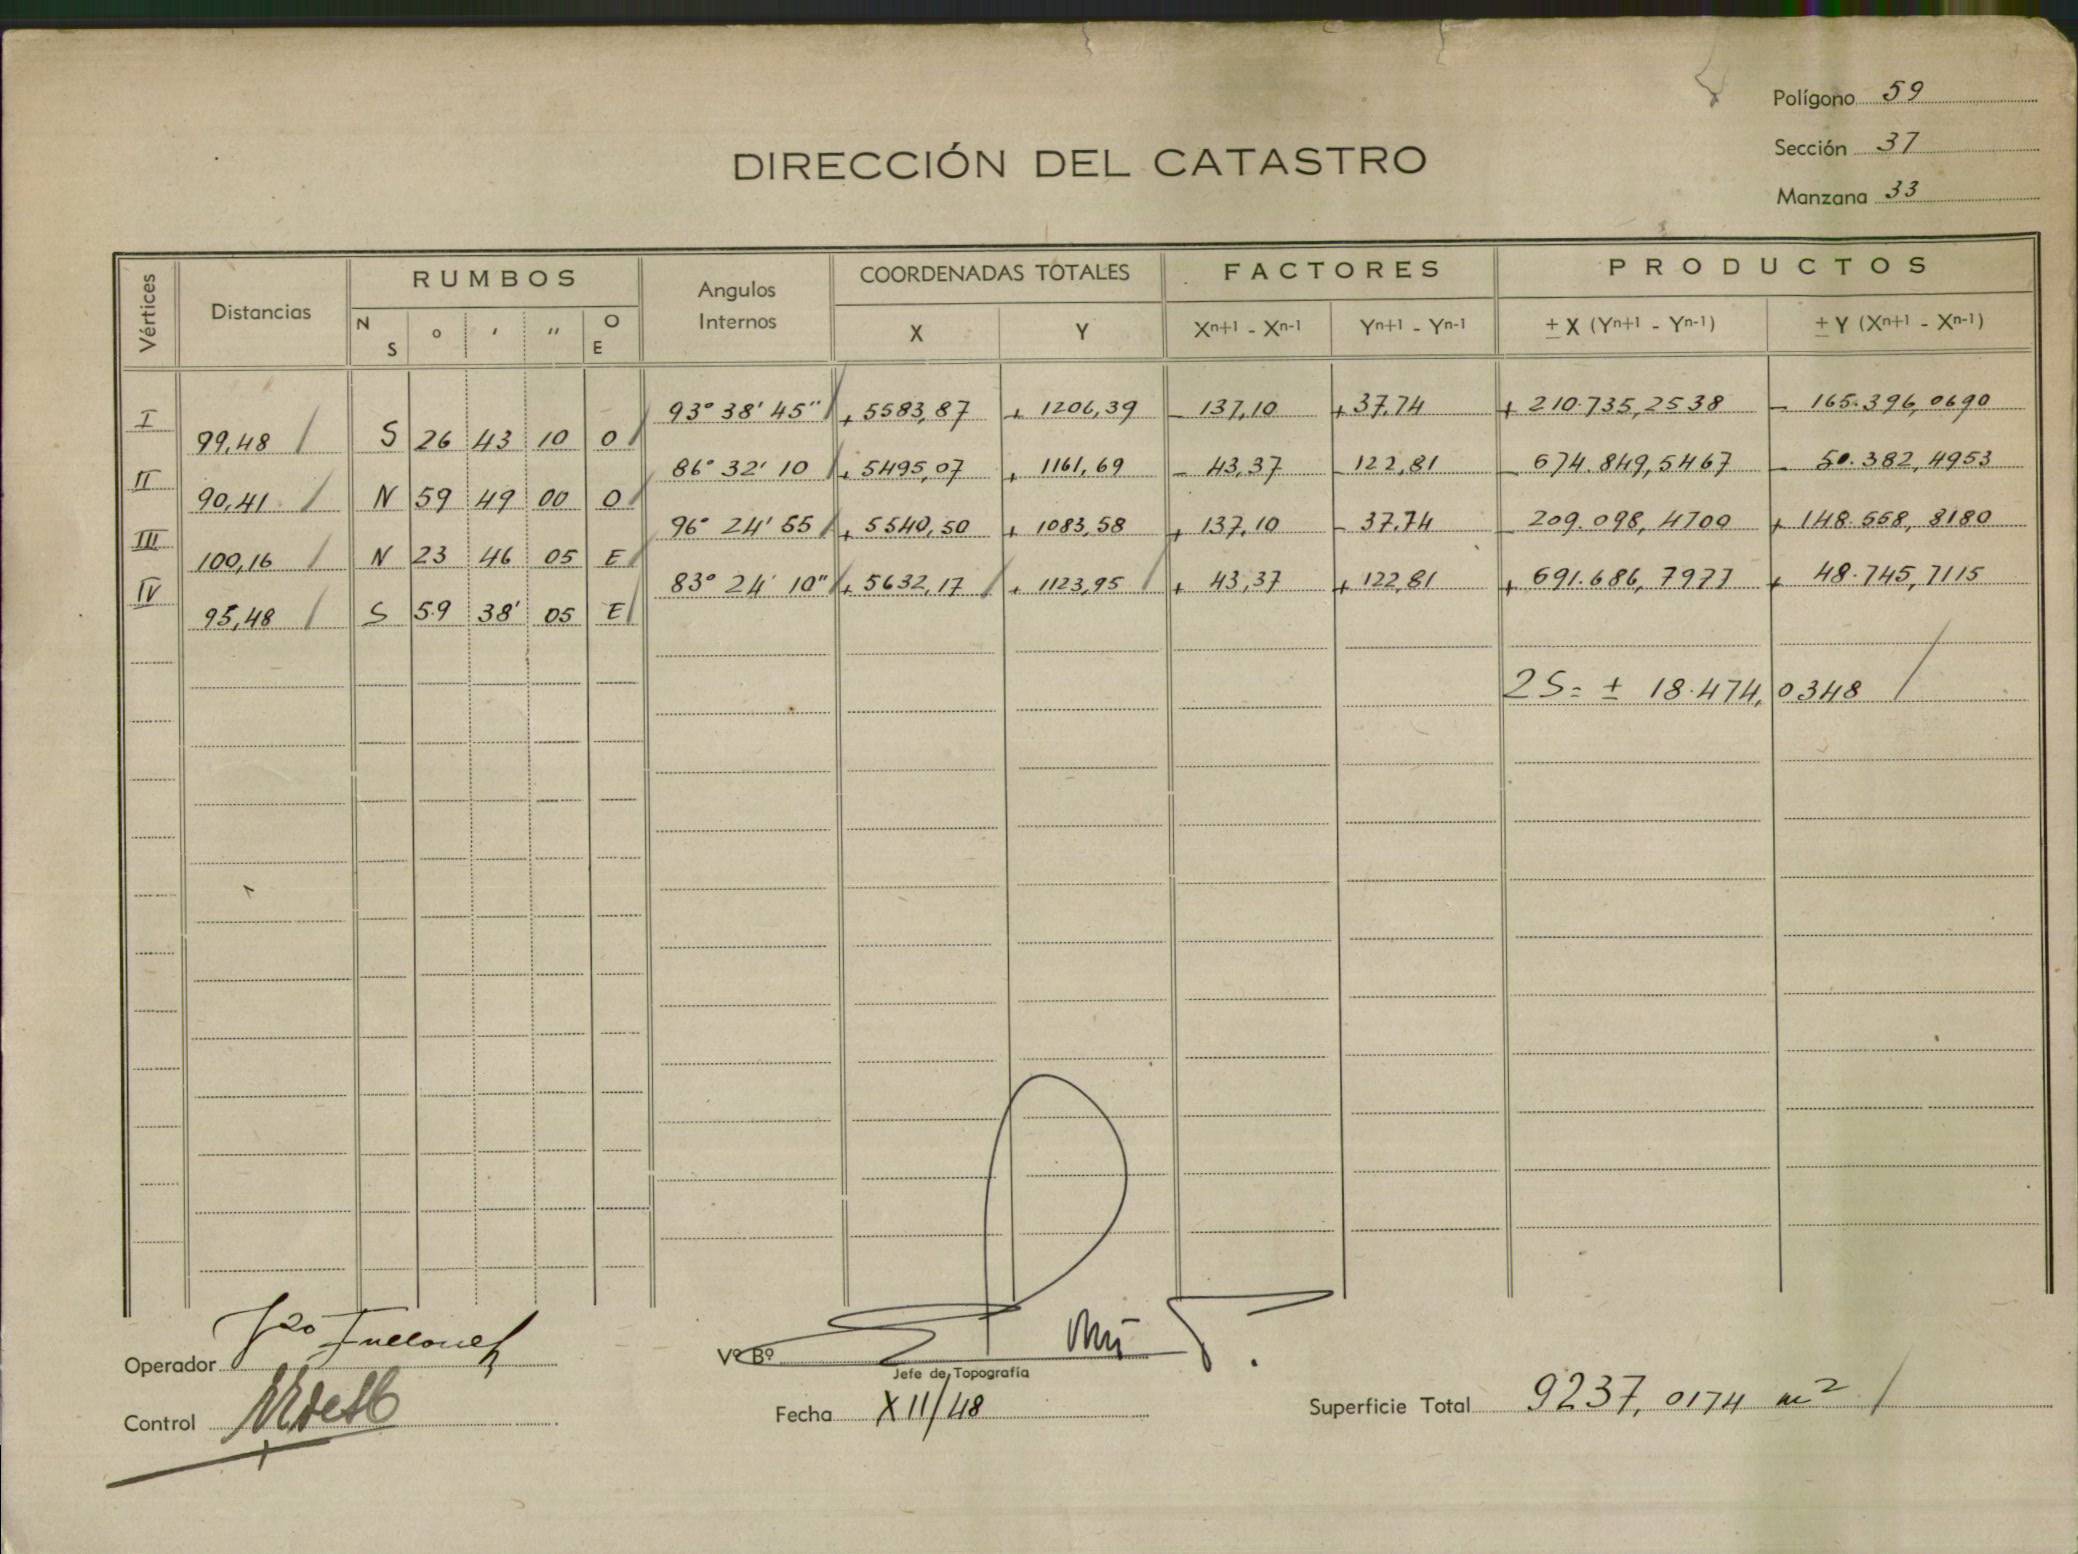 Polígono 59
Sección 37
Manzana 33
DIRECCIÓN DEL CATASTRO
Vértices Distancias RUMBOS Angulos Internos COORDENADAS TOTALES FACTORES PRODUCTOS
N S o ' '' O E X Y Xn+1 - Xn-1 Yn+1 - Yn-1 ± X (Yn+1 - Yn-1) ± Y (Xn+1 - Xn-1)
I 93° 38' 45" + 5583,87 + 1206,39 - 137,10 + 37,74 + 210.735,2538 - 165.396,0690
99,48 S 26 43 10 O
II 86° 32' 10 + 5495,07 + 1161,69 - 43,37 - 122,81 - 674.849,5467 - 50.382,4953
90,41 N 59 49 00 O
III 96° 24' 55 + 5540,50 + 1083,58 + 137,10 - 37,74 - 209.098,4700 + 148.558,8180
100,16 N 23 46 05 E
IV 83° 24' 10" + 5632,17 + 1123,95 + 43,37 + 122,81 + 691.686,7977 + 48.745,7115
95,48 S 59 38' 05 E
2S = ± 18.474,0348
Operador
Vº Bº
Jefe de Topografía
Control
Fecha XII/48
Superficie Total 9237,0174 m²